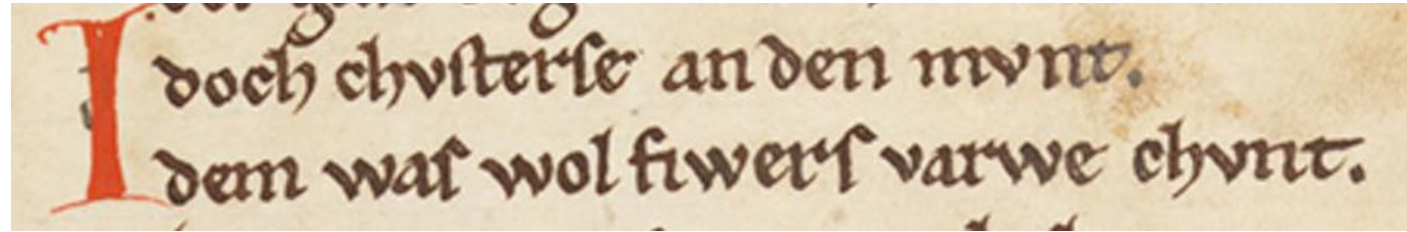 I
doch chvſterſe an den mvnt.
dem waſ wol fiwerſ varwe chvnt.